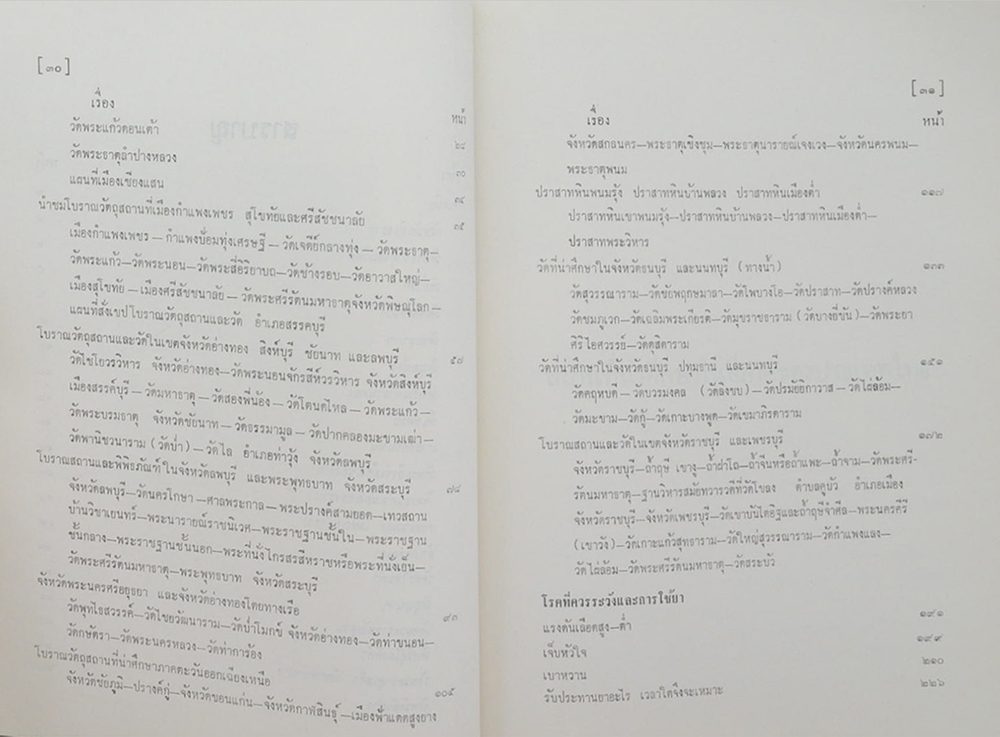 [๓๐]
เรื่อง
หน้า
วัดพระแก้วดอนเต้า
๒๘
วัดพระธาตุลำปางหลวง
๓๐
แผนที่เมืองเชียงแสน
๓๔
นำชมโบราณวัตถุสถานที่เมืองกำแพงเพชร สุโขทัยและศรีสัชชนาลัย
๓๕
เมืองกำแพงเพชร — กำแพงป้อมทุ่งเศรษฐี — วัดเจดีย์กลางทุ่ง — วัดพระธาตุ—
วัดพระแก้ว—วัดพระนอน—วัดพระสี่อิริยาบถ—วัดช้างรอบ—วัดอาวาสใหญ่—
เมืองสุโขทัย—เมืองศรีสัชชนาลัย—วัดพระศรีรัตนมหาธาตุจังหวัดพิษณุโลก—
แผนที่สังเขปโบราณวัตถุสถานและวัด อำเภอสรรคบุรี
โบราณวัตถุสถานและวัดในเขตจังหวัดอ่างทอง สิงห์บุรี ชัยนาท และลพบุรี
๕๗
วัดไชโยวรวิหาร จังหวัดอ่างทอง—วัดพระนอนจักรสีห์วรวิหาร จังหวัดสิงห์บุรี
เมืองสรรค์บุรี—วัดมหาธาตุ—วัดสองพี่น้อง—วัดโตนดไหล—วัดพระแก้ว—
วัดพระบรมธาตุ จังหวัดชัยนาท—วัดธรรมามูล—วัดปากคลองมะขามเฒ่า—
วัดพานิชวนาราม (วัดบ้ำ)—วัดไล อำเภอท่าวุ้ง จังหวัดลพบุรี
โบราณสถานและพิพิธภัณฑ์ในจังหวัดลพบุรี และพระพุทธบาท จังหวัดสระบุรี
๗๔
จังหวัดลพบุรี—วัดนครโกษา—ศาลพระกาล—พระปรางค์สามยอด—เทวสถาน
บ้านวิชาเยนทร์—พระนารายณ์ราชนิเวศ—พระราชฐานชั้นใน—พระราชฐาน
ชั้นกลาง—พระราชฐานชั้นนอก—พระที่นั่งไกรสรสีหราชหรือพระที่นั่งเย็น—
วัดพระศรีรัตนมหาธาตุ—พระพุทธบาท จังหวัดสระบุรี
จังหวัดพระนครศรีอยุธยา และจังหวัดอ่างทองโดยทางเรือ
๙๓
วัดพุทไธสวรรค์—วัดไชยวัฒนาราม—วัดป่าโมกข์ จังหวัดอ่างทอง—วัดท่าขนอน—
วัดกษัตรา—วัดพระนครหลวง—วัดท่าการ้อง
โบราณวัตถุสถานที่น่าศึกษาภาคตะวันออกเฉียงเหนือ
๑๐๕
จังหวัดชัยภูมิ—ปรางค์กู่—จังหวัดขอนแก่น—จังหวัดกาฬสินธุ์—เมืองฟ้าแดดสูงยาง
[๓๑]
เรื่อง
หน้า
จังหวัดสกลนคร—พระธาตุเชิงชุม—พระธาตุนารายณ์เจงเวง—จังหวัดนครพนม—
พระธาตุพนม
ปราสาทหินพนมรุ้ง ปราสาทหินบ้านพลวง ปราสาทหินเมืองต่ำ
๑๑๗
ปราสาทหินเขาพนมรุ้ง—ปราสาทหินบ้านพลวง—ปราสาทหินเมืองต่ำ—
ปราสาทพระวิหาร
วัดที่น่าศึกษาในจังหวัดธนบุรี และนนทบุรี (ทางน้ำ)
๑๓๓
วัดสุวรรณาราม—วัดชัยพฤกษมาลา—วัดไพบางโอ—วัดปราสาท—วัดปรางค์หลวง
วัดชมภูเวก—วัดเฉลิมพระเกียรติ—วัดมุขราชธาราม (วัดบางยี่ขัน)—วัดพระยา
ศิริไอศวรรย์—วัดดุสิดาราม
วัดที่น่าศึกษาในจังหวัดธนบุรี ปทุมธานี และนนทบุรี
๑๕๑
วัดคฤหบดี—วัดบวรมงคล (วัดลิงขบ)—วัดปรมัยยิกาวาส—วัดไผ่ล้อม—
วัดมะขาม—วัดกู้—วัดเกาะบางพูด—วัดเขมาภิรตาราม
โบราณสถานและวัดในเขตจังหวัดราชบุรี และเพชรบุรี
๑๗๒
จังหวัดราชบุรี—ถ้ำฤษี เขางู—ถ้ำฝาโถ—ถ้ำจีนหรือถ้ำแพะ—ถ้ำจาม—วัดพระศรี-
รัตนมหาธาตุ—ฐานวิหารสมัยทวารวดีที่วัดโขลง ตำบลคูบัว อำเภอเมือง
จังหวัดราชบุรี—จังหวัดเพชรบุรี—วัดเขาบันไดอิฐและถ้ำฤษีจำศีล—พระนครคีรี
(เขาวัง)—วัดเกาะแก้วสุทธาราม—วัดใหญ่สุวรรณาราม—วัดกำแพงแลง—
วัดไผ่ล้อม—วัดพระศรีรัตนมหาธาตุ—วัดสระบัว
โรคที่ควรระวังและการใช้ยา
แรงดันเลือดสูง—ต่ำ
๑๙๑
เจ็บหัวใจ
๑๙๙
เบาหวาน
๒๑๐
รับประทานยาอะไร เวลาใดจึงจะเหมาะ
๒๒๖